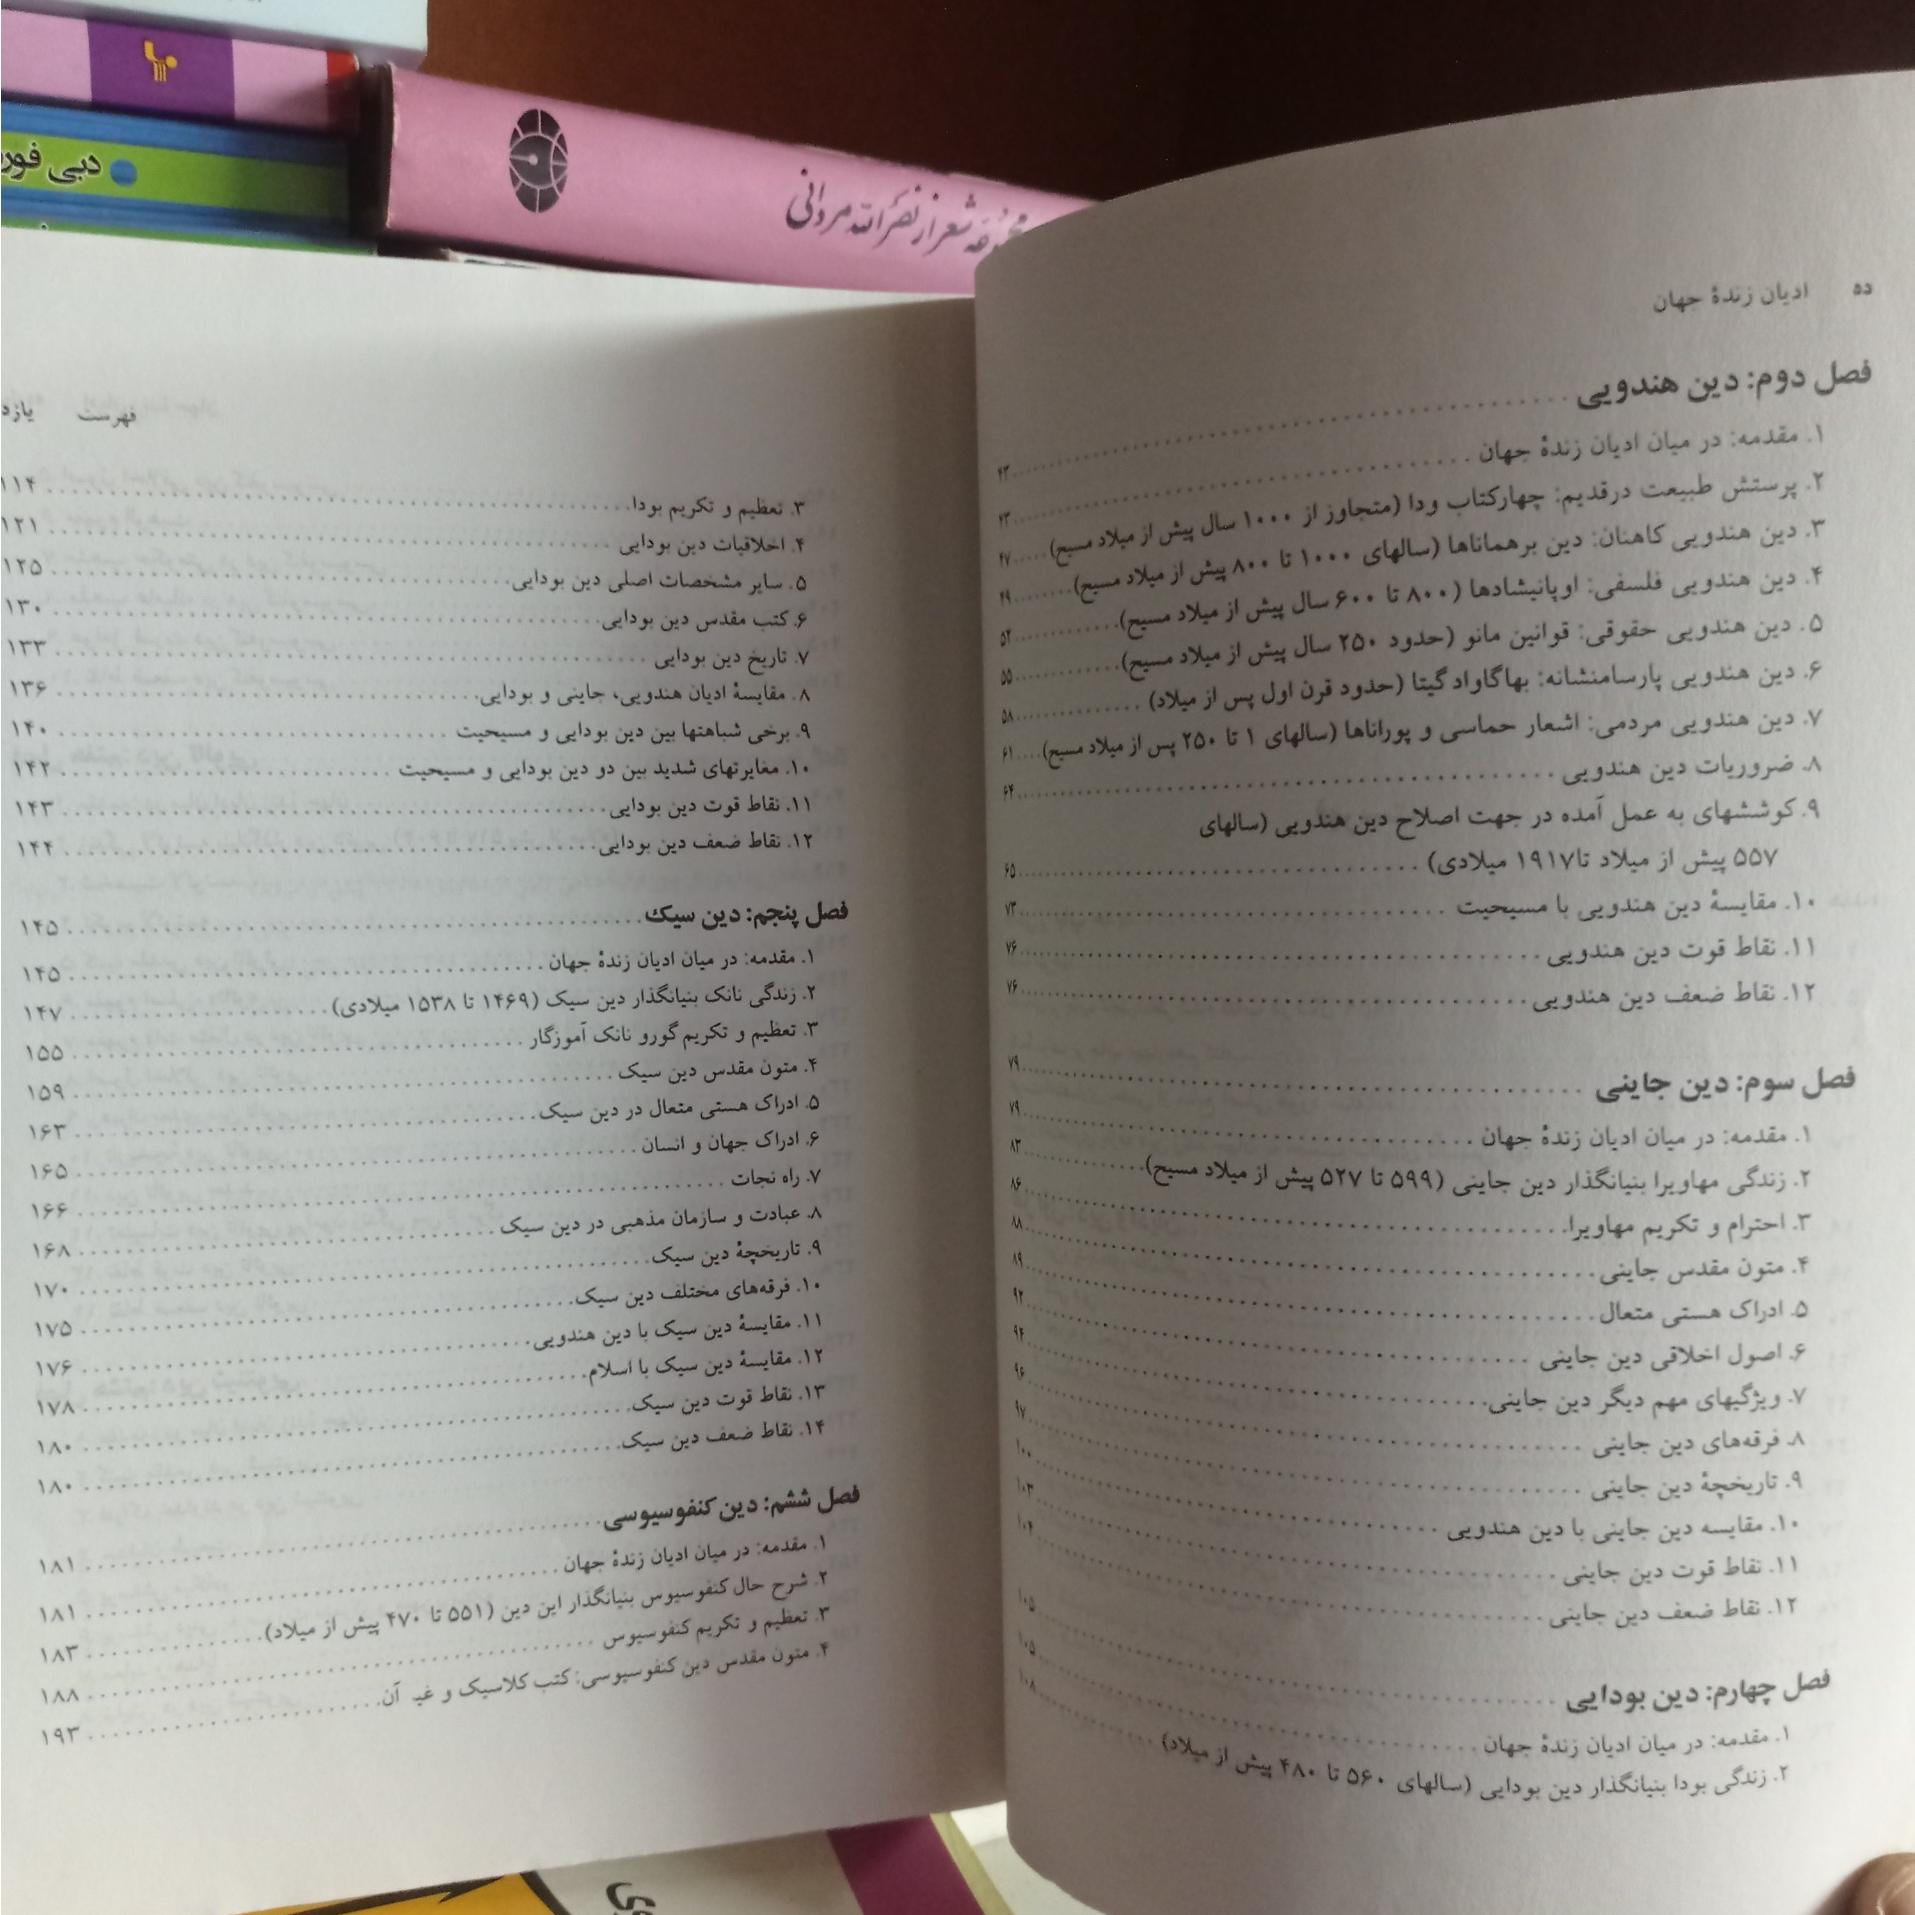 دبی فور
مجموعه شعر از نصرالله مردانی
ده ادیان زندهٔ جهان
فصل دوم: دین هندویی ........ ۴۳
۱. مقدمه: در میان ادیان زندهٔ جهان ........ ۴۳
۲. پرستش طبیعت درقدیم: چهارکتاب ودا (متجاوز از ۱۰۰۰ سال پیش از میلاد مسیح) ........ ۴۷
۳. دین هندویی کاهنان: دین برهماناها (سالهای ۱۰۰۰ تا ۸۰۰ پیش از میلاد مسیح) ........ ۴۹
۴. دین هندویی فلسفی: اوپانیشادها (۸۰۰ تا ۶۰۰ سال پیش از میلاد مسیح) ........ ۵۲
۵. دین هندویی حقوقی: قوانین مانو (حدود ۲۵۰ سال پیش از میلاد مسیح) ........ ۵۵
۶. دین هندویی پارسامنشانه: بهاگاوادگیتا (حدود قرن اول پس از میلاد) ........ ۵۸
۷. دین هندویی مردمی: اشعار حماسی و پوراناها (سالهای ۱ تا ۲۵۰ پس از میلاد مسیح) ........ ۶۱
۸. ضروریات دین هندویی ........ ۶۴
۹. کوششهای به عمل آمده در جهت اصلاح دین هندویی (سالهای
۵۵۷ پیش از میلاد تا۱۹۱۷ میلادی) ........ ۶۵
۱۰. مقایسهٔ دین هندویی با مسیحیت ........ ۷۳
۱۱. نقاط قوت دین هندویی ........ ۷۶
۱۲. نقاط ضعف دین هندویی ........ ۷۶
فصل سوم: دین جاینی ........ ۷۹
۱. مقدمه: در میان ادیان زندهٔ جهان ........ ۷۹
۲. زندگی مهاویرا بنیانگذار دین جاینی (۵۹۹ تا ۵۲۷ پیش از میلاد مسیح) ........ ۸۳
۳. احترام و تکریم مهاویرا ........ ۸۶
۴. متون مقدس جاینی ........ ۸۸
۵. ادراک هستی متعال ........ ۸۹
۶. اصول اخلاقی دین جاینی ........ ۹۲
۷. ویژگیهای مهم دیگر دین جاینی ........ ۹۴
۸. فرقه‌های دین جاینی ........ ۹۶
۹. تاریخچهٔ دین جاینی ........ ۹۷
۱۰. مقایسه دین جاینی با دین هندویی ........ ۱۰۰
۱۱. نقاط قوت دین جاینی ........ ۱۰۳
۱۲. نقاط ضعف دین جاینی ........ ۱۰۴
فصل چهارم: دین بودایی ........ ۱۰۵
۱. مقدمه: در میان ادیان زندهٔ جهان ........ ۱۰۵
۲. زندگی بودا بنیانگذار دین بودایی (سالهای ۵۶۰ تا ۴۸۰ پیش از میلاد) ........ ۱۰۸
فهرست یازد
۳. تعظیم و تکریم بودا ........ ۱۱۴
۴. اخلاقیات دین بودایی ........ ۱۲۱
۵. سایر مشخصات اصلی دین بودایی ........ ۱۲۵
۶. کتب مقدس دین بودایی ........ ۱۳۰
۷. تاریخ دین بودایی ........ ۱۳۳
۸. مقایسهٔ ادیان هندویی، جاینی و بودایی ........ ۱۳۶
۹. برخی شباهتها بین دین بودایی و مسیحیت ........ ۱۴۰
۱۰. مغایرتهای شدید بین دو دین بودایی و مسیحیت ........ ۱۴۲
۱۱. نقاط قوت دین بودایی ........ ۱۴۳
۱۲. نقاط ضعف دین بودایی ........ ۱۴۴
فصل پنجم: دین سیک ........ ۱۴۵
۱. مقدمه: در میان ادیان زندهٔ جهان ........ ۱۴۵
۲. زندگی نانک بنیانگذار دین سیک (۱۴۶۹ تا ۱۵۳۸ میلادی) ........ ۱۴۷
۳. تعظیم و تکریم گورو نانک آموزگار ........ ۱۵۵
۴. متون مقدس دین سیک ........ ۱۵۹
۵. ادراک هستی متعال در دین سیک ........ ۱۶۳
۶. ادراک جهان و انسان ........ ۱۶۵
۷. راه نجات ........ ۱۶۶
۸. عبادت و سازمان مذهبی در دین سیک ........ ۱۶۸
۹. تاریخچهٔ دین سیک ........ ۱۷۰
۱۰. فرقه‌های مختلف دین سیک ........ ۱۷۵
۱۱. مقایسهٔ دین سیک با دین هندویی ........ ۱۷۶
۱۲. مقایسهٔ دین سیک با اسلام ........ ۱۷۸
۱۳. نقاط قوت دین سیک ........ ۱۸۰
۱۴. نقاط ضعف دین سیک ........ ۱۸۰
فصل ششم: دین کنفوسیوسی ........ ۱۸۱
۱. مقدمه: در میان ادیان زندهٔ جهان ........ ۱۸۱
۲. شرح حال کنفوسیوس بنیانگذار این دین (۵۵۱ تا ۴۷۰ پیش از میلاد) ........ ۱۸۳
۳. تعظیم و تکریم کنفوسیوس ........ ۱۸۸
۴. متون مقدس دین کنفوسیوسی: کتب کلاسیک و غیر آن ........ ۱۹۳